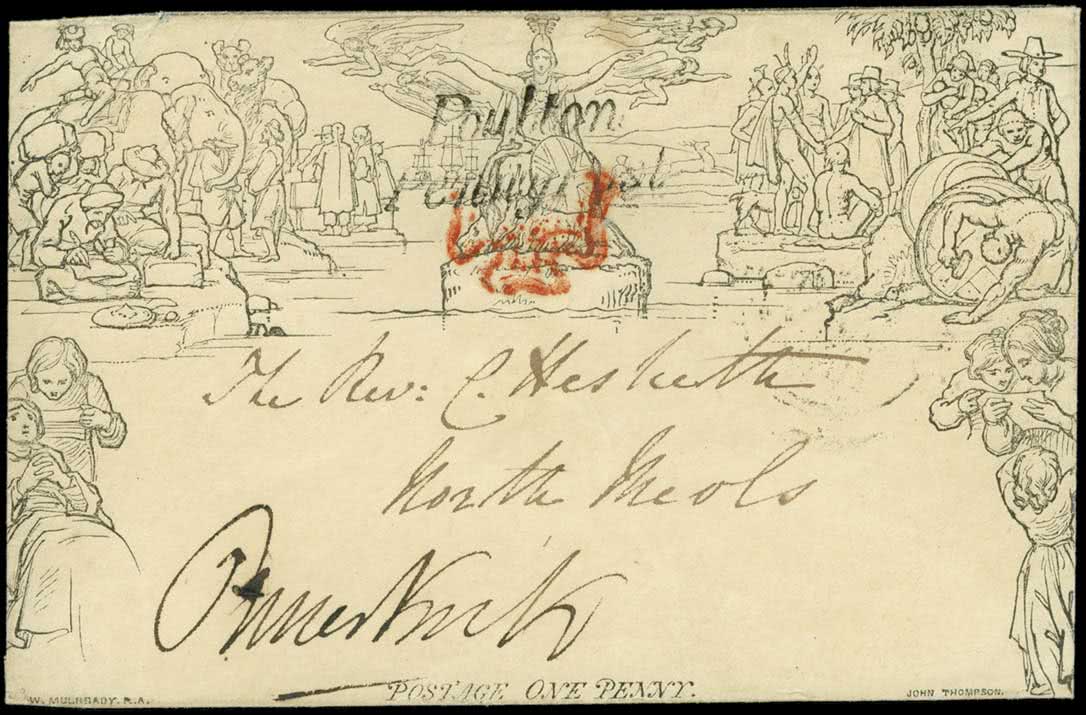 Poulton
Penny Post
The Rev: C. Hesketh
North Meols
Ormskirk
POSTAGE ONE PENNY.
W. MULREADY. R.A.
JOHN THOMPSON.